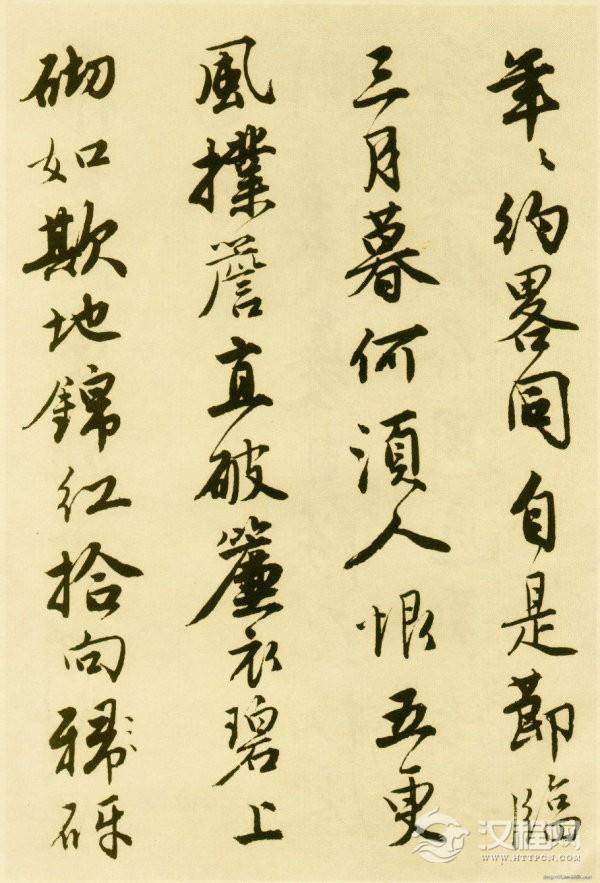 年〻約畧同自是節臨
三月暮何須人恨五更
風撲簷直破簾衣碧上
砌如欺地錦紅拾向砑
汉程网
WWW.HTTPCN.COM